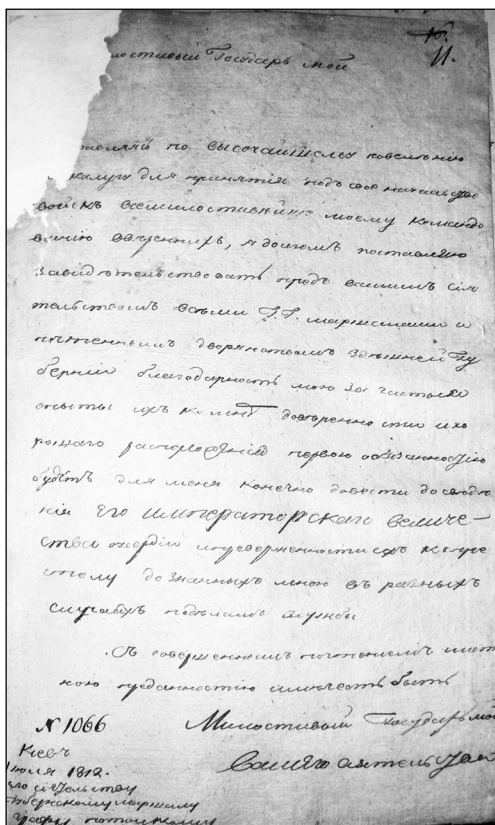 11.
лостивый Государь мой
по высочайшему повелению
калугу для принятія подъ свое начальство
войскъ всемилостивѣйше моему командо
ванію ввѣренныхъ, я долгомъ поставляю
засвидѣтельствовать предъ вашимъ сія
тельствомъ всѣми Г.Г. маршалами и
почтеннымъ дворянствомъ здѣшней Гу
берніи благодарность мою за
опыты ихъ ко мнѣ довѣренности и хо
рошаго расположенія первою обязанностію
будетъ для меня конечно довести до свѣде
нія Его Императорскаго величе
ства усердіе и приверженность ихъ къ пре
столу дознанныхъ мною въ разныхъ
случаяхъ по дѣламъ службы
Съ совершеннымъ почтеніемъ и
кою преданностію имѣю честь быть
N 1066
Милостивый Государь мой
Вашего сіятельства
Кіевъ
июля 1812.
его сіятельству
губернскому маршалу
графу потоцкому